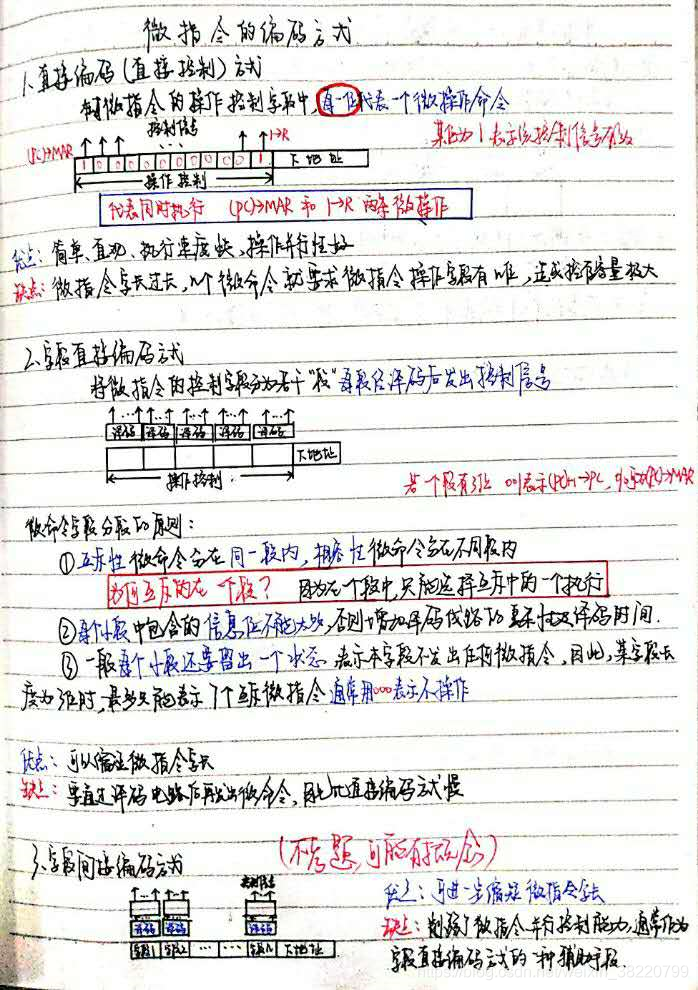 微指令的编码方式
1.直接编码(直接控制)方式
在微指令的操作控制字段中,每一位代表一个微操作命令
某位为1表示该控制信号有效
控制信号
(PC)→MAR ... 1→R
1 0 0 0 0 0 0 0 0 0 1 下地址
操作控制
代表同时执行 (PC)→MAR 和 1→R 两条微操作
优点: 简单、直观、执行速度快,操作并行性好
缺点: 微指令字长过长,n个微命令就要求微指令操作字段有n位,造成控存容量极大
2.字段直接编码方式
将微指令的控制字段分为若干"段"每段经译码后发出控制信号
译码 译码 译码 译码 译码
下地址
操作控制
若一个段有3位 001表示(PC)+1→PC, (PC)→MAR
微命令字段分段的原则:
①互斥性微命令分在同一段内,相容性微命令分在不同段内
为何互斥的在一个段? 因为在一个段中,只能选择互斥中的一个执行
②每个小段中包含的信息位不能太多,否则增加译码线路的复杂性及译码时间.
③一般每个小段还要留出一个状态 表示本字段不发出任何微指令,因此,某字段长
度为3位时,最多只能表示7个互斥微指令 通常用000表示不操作
优点: 可以缩短微指令字长
缺点: 要通过译码电路后再发出微命令,因此比直接编码方式慢
3.字段间接编码方式 (不考题,可能有概念)
控制信号
译码 译码 译码
字段1 字段2 ... ... 字段n 下地址
优点: 可进一步缩短微指令字长
缺点: 削弱了微指令并行控制能力,通常作为
字段直接编码方式的一种辅助手段
https://blog.csdn.net/weixin_38220799